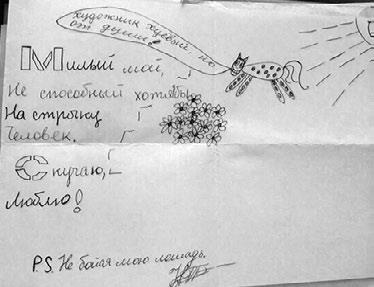 художник хуевый но
от души!
Милый мой,
Не способный хотябы
На строчку
Человек.
Скучаю,
Люблю!
P.S. Не бойся мою лошадь.